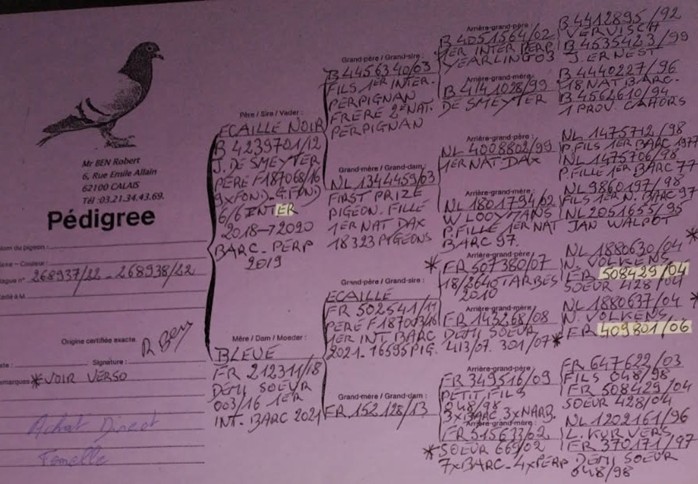 Mr BEN Robert
6, Rue Emile Allain
62100 CALAIS
Tél :03.21.34.43.69.
Pédigree
Nom du pigeon :
268937/22 - 268938/22
Origine certifiée exacte.
R Ben
Signature :
Remarques : *VOIR VERSO
Achat Direct
Femelle
Père / Sire / Vader :
ECAILLE NOIR
B 4239701/12
J. DE SMEYTER
PÈRE F187068/16
9xFOND-G.FOND
6/6 INTER
2018→2020
BARC. PERP
2019
Mère / Dam / Moeder :
BLEUE
FR 212311/18
DEMI SOEUR
003/16 1ER
INT. BARC 2021
Grand-père / Grand-sire :
B 4456340/03
FILS 1ER INTER.
PERPIGNAN
FRÈRE 2°NAT.
PERPIGNAN
Grand-mère / Grand-dam :
NL 1344459/03
FIRST PRIZE
PIGEON. FILLE
1ER NAT DAX
18323 PIGEONS
Grand-père / Grand-sire :
ECAILLE
FR 502541/11
PÈRE F187003/16
1ER INT BARC
2021. 16595 PIG.
Grand-mère / Grand-dam :
FR 152128/13
Arrière-grand-père :
B 4051564/02
1ER INTER PERP
YEARLING 03
Arrière-grand-mère :
B 4141028/99
DE SMEYTER
Arrière-grand-père :
NL 4008802/99
1ER NAT DAX
Arrière-grand-mère :
NL 1801794/02
W LOOYMANS
P. FILLE 1ER NAT
BARC 97.
Arrière-grand-père :
*FR 507380/07
18/2646 TARBES
2010
Arrière-grand-mère :
FR 143268/08
DEMI SOEUR
413/07. 301/07*
Arrière-grand-père :
FR 349516/09
PETIT FILS
048/98
3xBARC 3xNARB
Arrière-grand-mère :
FR 515633/02
*SOEUR 669/02
7xBARC-4xPERP
B 4412895/92
VERVISCH
B 4535423/99
J. ERNEST
B 4440227/96
18 NAT BARC.
B 4564610/94
1 PROV CAHORS
NL 1475712/98
P.FILS 1ER BARC 1977
NL 1475706/98
P.FILLE 1ER BARC 77
NL 9860197/98
FILS 1ER N. BARC 97
NL 2051653/95
JAN WALPOT
NL 1880630/04
N. VOLKENS
FR 508429/04
SOEUR 428/04
NL 1880637/04
N. VOLKENS
FR 409801/06
FR 647622/03
FILS 048/98
FR 508429/04
SOEUR 428/04
NL 1202161/96
L. KUR VERS
FR 370171/97
DEMI SOEUR
048/98